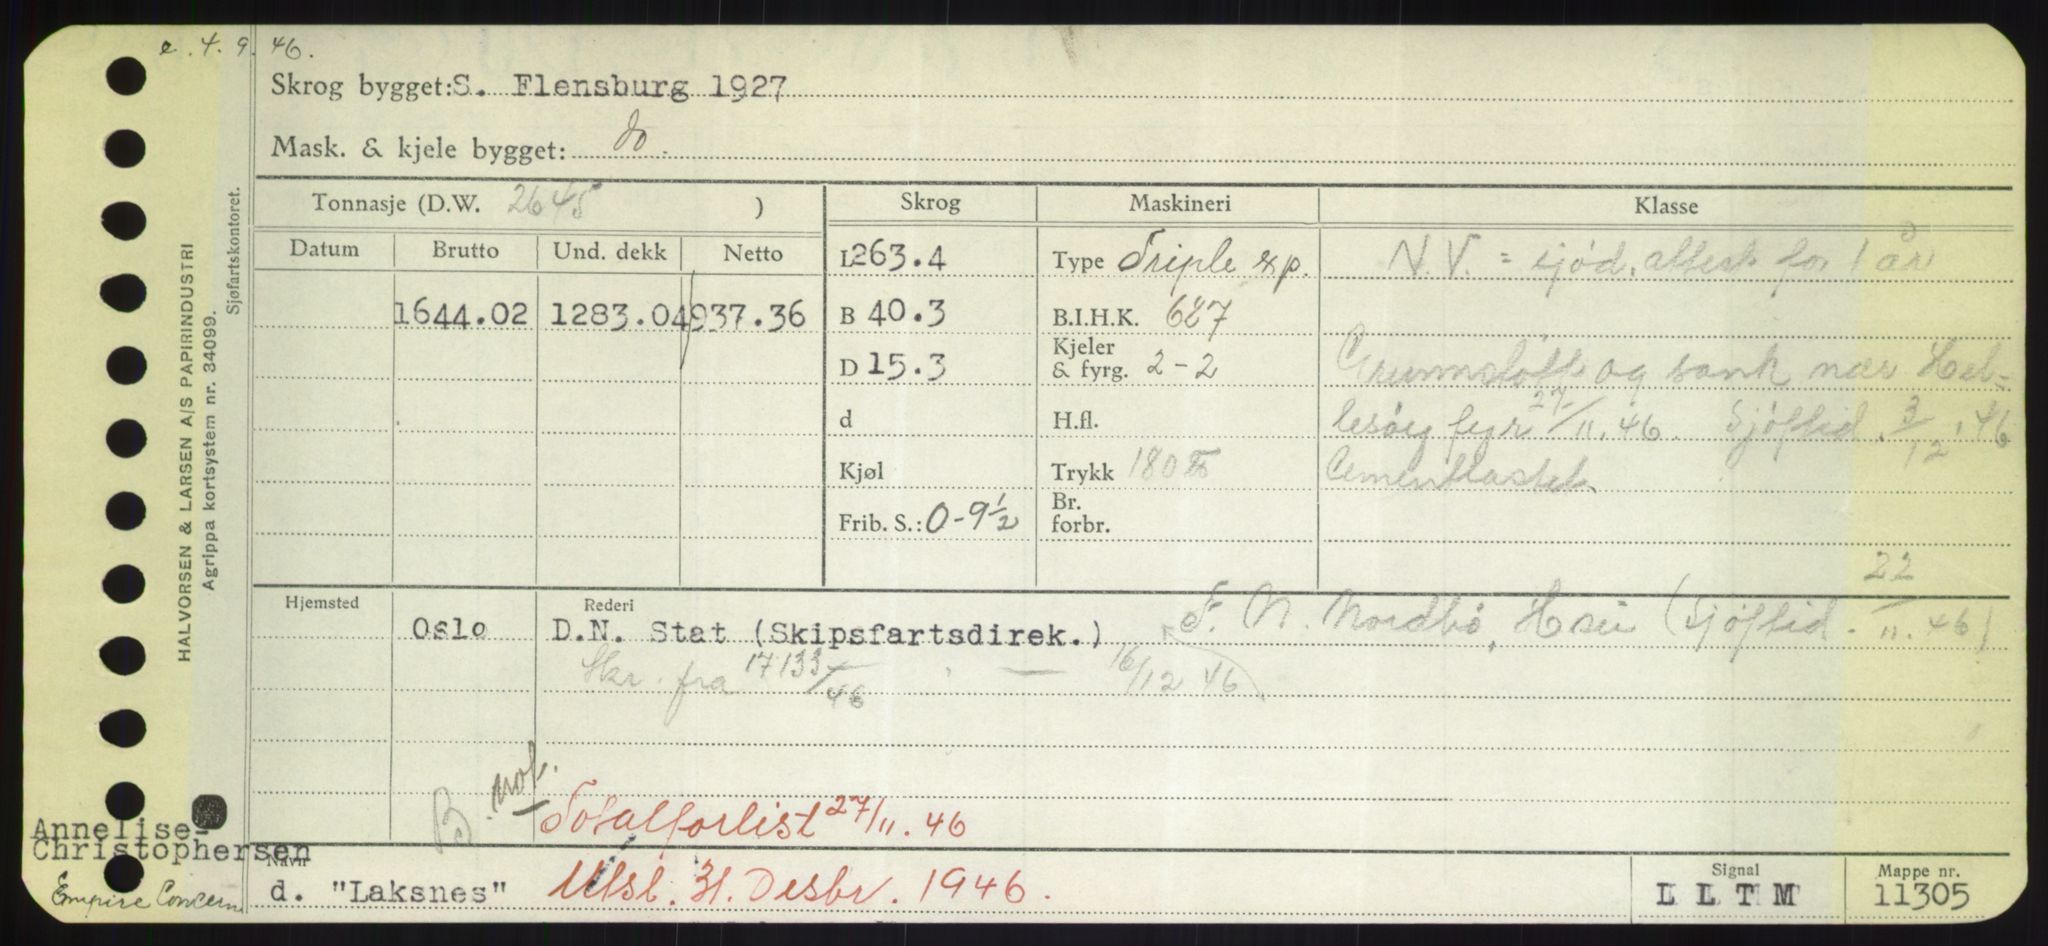 e. 4. 9. 46.
Skrog bygget: S. Flensburg 1927
Mask. & kjele bygget: do.
Tonnasje (D.W. 2645 )
Skrog
Maskineri
Klasse
Datum
Brutto
Und. dekk
Netto
1644.02
1283.04
937.36
L 263.4
B 40.3
D 15.3
d
Kjøl
Frib. S.: 0-9½
Type Triple exp.
B.I.H.K. 687
Kjeler
& fyrg. 2-2
H.fl.
Trykk 180
Br.
forbr.
N.V. = sjød. attest for 1 år
Grunnstøtt og sank nær Hel-
lesøy fyr 27/11.46. Sjøftid. 3/12.46
Cementlastet.
Hjemsted
Rederi
Oslo
D.N. Stat (Skipsfartsdirek.)
F. N. Nordbø, (Sjøftid. 22/11.46)
Skr. fra 17133/46 — 16/12 46
B
not.
Totalforlist 27/11. 46
Navn
d. "Laksnes"
Utsl. 31. Desbr. 1946.
Signal
L L T M
Mappe nr.
11305
Annelise-
Christophersen
Empire Concern
HALVORSEN & LARSEN A/S PAPIRINDUSTRI
Agrippa kortsystem nr. 34099.
Sjøfartskontoret.